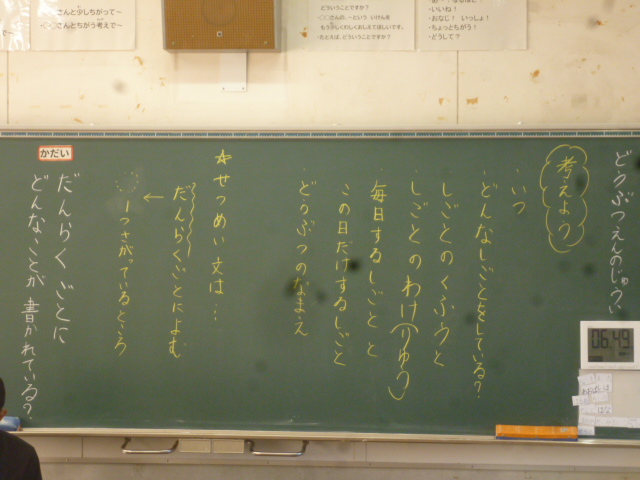 どうぶつえんのじゅうい
考えよう
・いつ
・どんなしごとをしている？
しごとのくふうと
しごとのわけ(りゆう)
・毎日するしごとと
この日だけするしごと
・どうぶつのなまえ
☆せつめい文は…
だんらくごとによむ
↓
一つさがっているところ
かだい
だんらくごとに
どんなことが書かれている？
06:49
こんと少しちがって～
んとちがう考えで～
どういうことですか？
・〇〇さんの、～という いけんを
もう少しくわしくおしえてほしいです。
・たとえば、どういうことですか？
・いいね！
・おなじ！ いっしょ！
・ちょっとちがう！
・どうして？